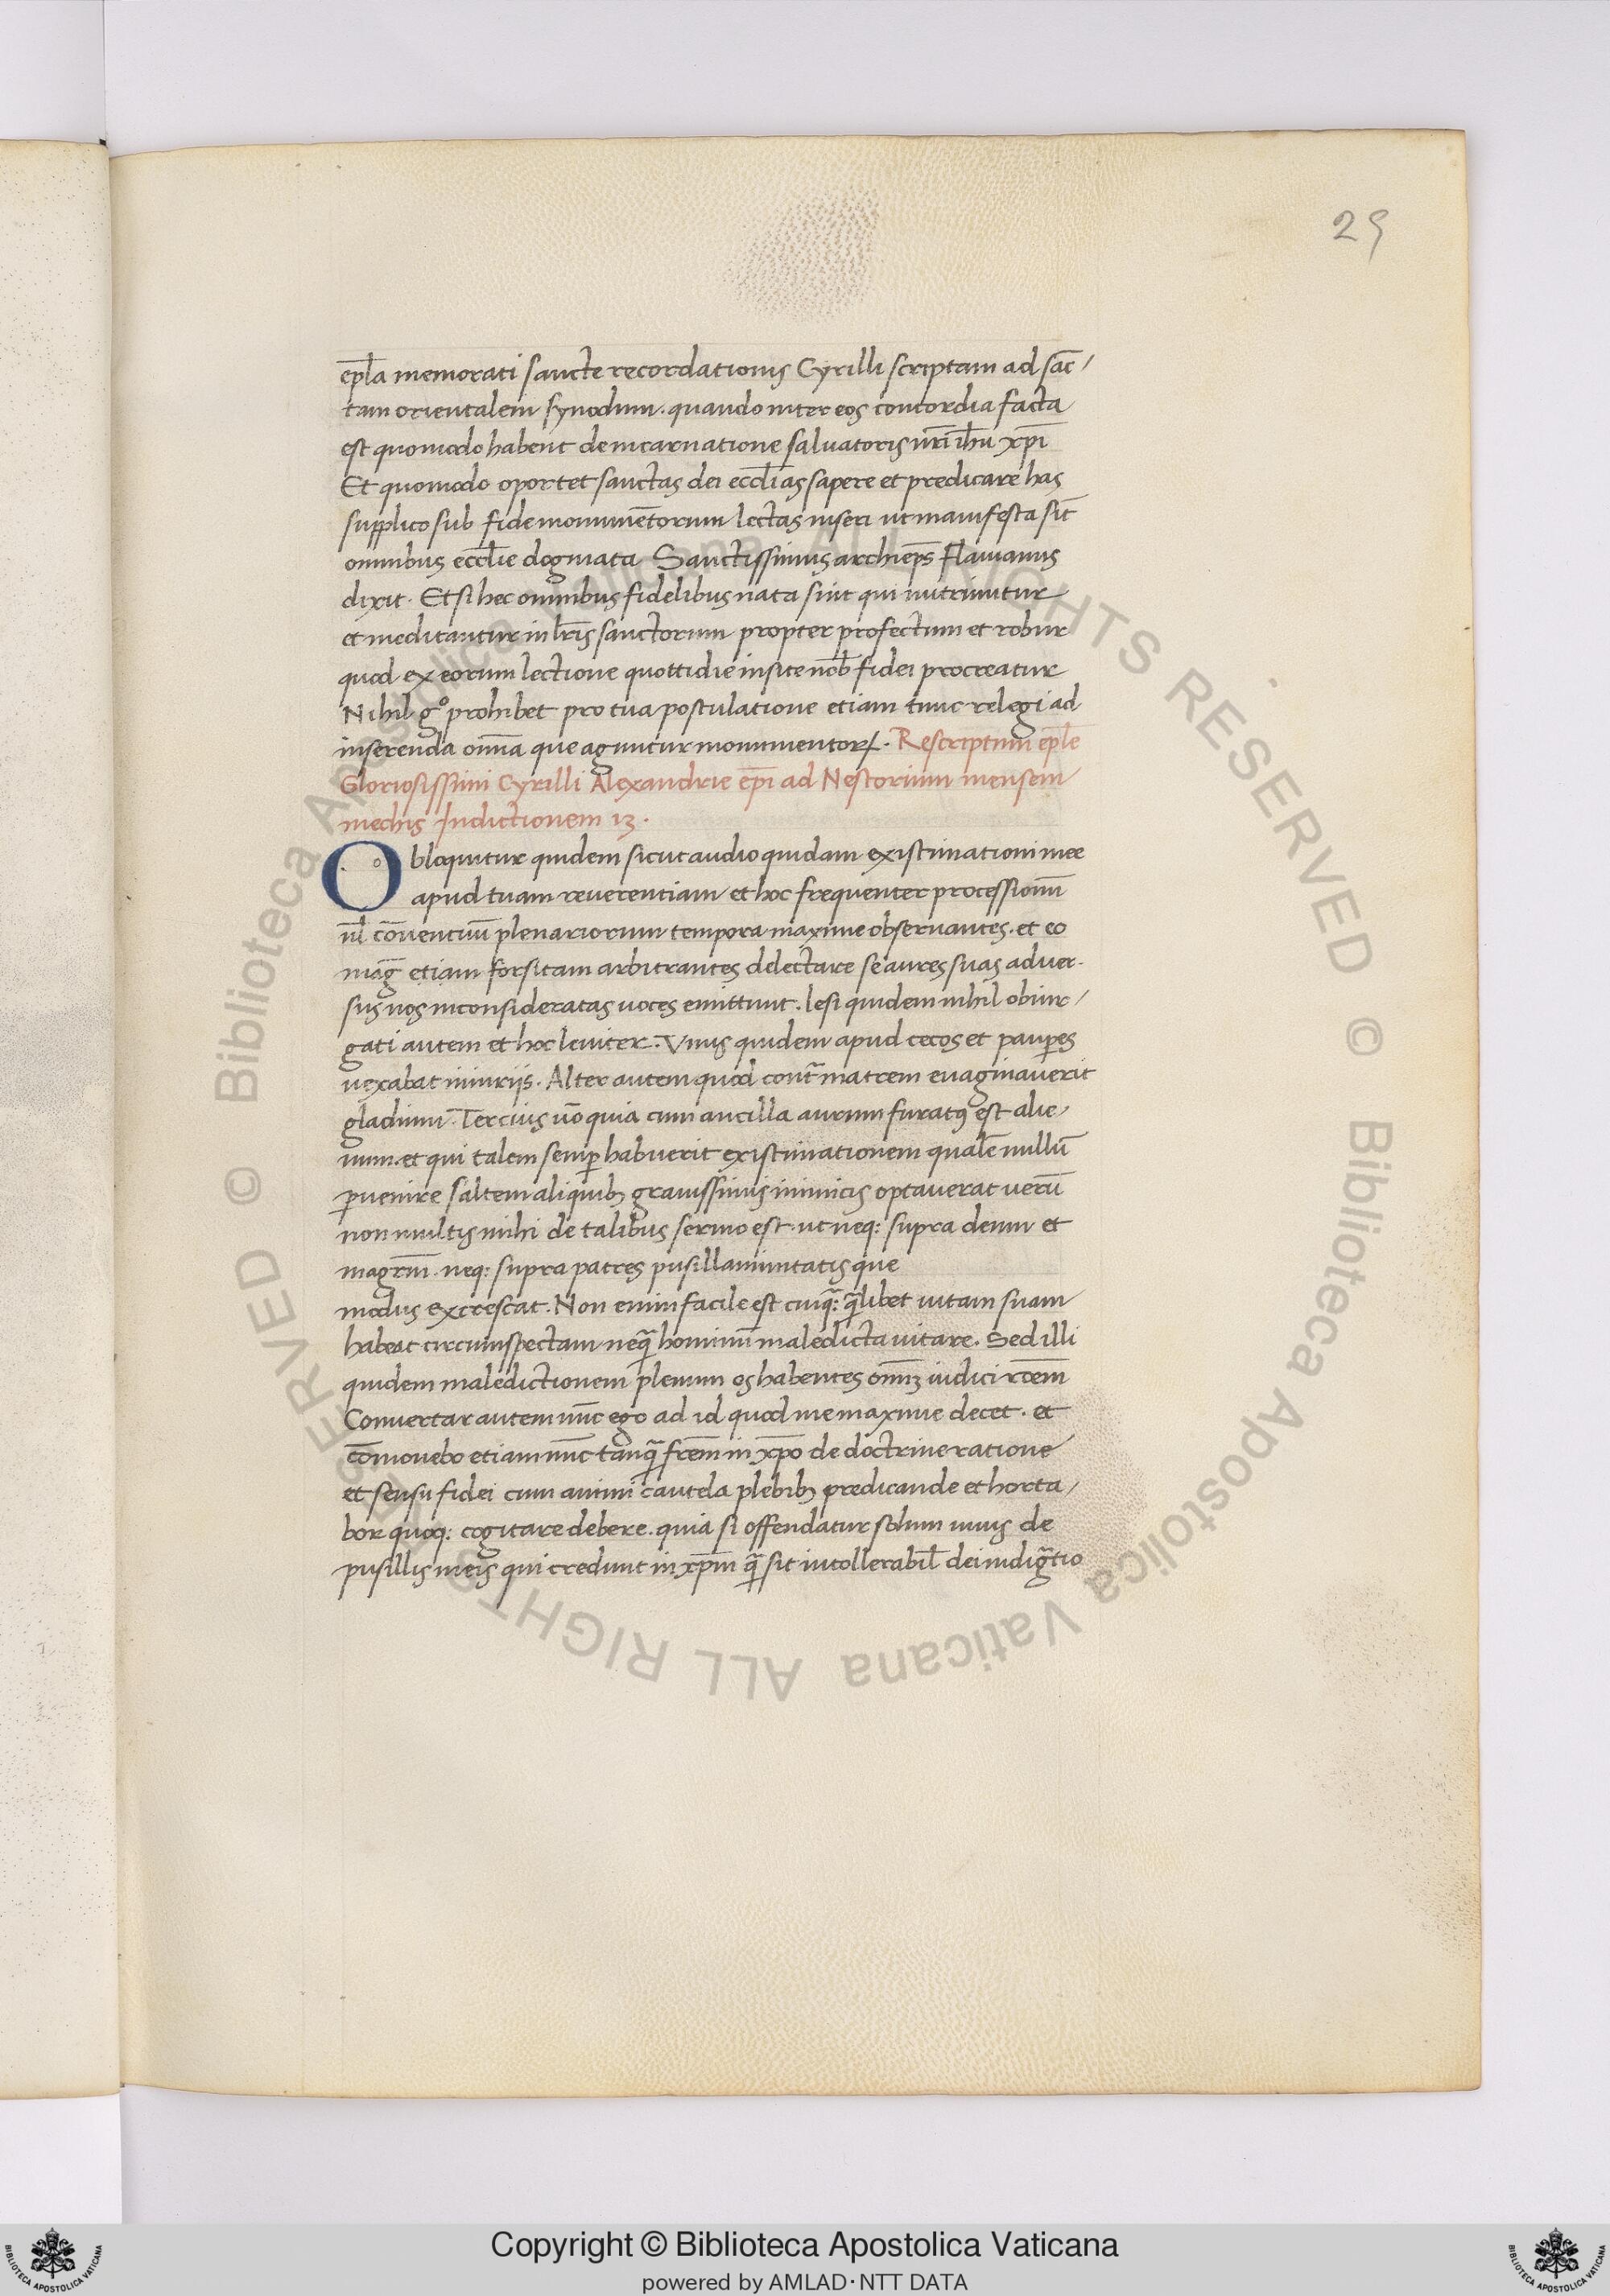 25
ep̅l̅a memorati sancte recordationis Cyrilli scriptam ad sāc/
tam orientalem synodum. quando inter eos concordia facta
est quomodo habent de incarnatione salvatoris nr̅i ih̅u xp̅i
Et quomodo oportet sanctas dei eccl̅ias sapere et predicare has
supplico sub fide monumētorum lectas inseri ut manifesta sīt
omnibus eccl̅ie dogmata Sanctissimus archiep̅s Flavianus
dixit. Et si hec omnibus fidelibus nata sint qui nutriuntur
et meditantur in lr̅is sanctorum propter profectum et robur
quod ex eorum lectione quottidie insite nob̅ fidei procreatur
Nihil gº prohibet pro tua postulatione etiam tunc relegi ad
inserenda om̅a que aguntur monumentoꝝ. Rescriptum ep̅le
Gloriosissimi Cyrilli Alexandrie ep̅i ad Nestorium mensem
mechis Indictionem 13.
Obloquitur quidem sicut audio quidam existimationi mee
apud tuam reverentiam et hoc frequenter processionū
ul̅ cōventuū plenariorum tempora maxime observantes. et eo
mag̅ etiam forsitam arbitrantes delectare se aures suas adver-
sus nos inconsideratas voces emittunt. lesi quidem nihil obiur/
gati autem et hoc leniter. Unus quidem apud cecos et paup̅es
vexabat iniurijs. Alter autem quod cont̅ matrem evaginaverit
gladium. Tercius ūo quia cum ancilla aurum furatꝰ est alie/
num. et qui talem semꝑ habuerit existimationem qualē nullū
ꝑvenire saltem aliquibꝫ gravissimis inimicis optaverat verū
non multis mihi de talibus sermo est. ut neq: supra deum et
magr̅m. neq: supra patres pusillanimitatis que
modus excrescat. Non enim facile est cuiq̅: q̅libet vitam suam
habeat circumspectam neq̅ hominū maledicta vitare. Sed illi
quidem maledictionem plenum os habentes om̅ꝫ iudici r̅c̅em
Convertar autem nūc ego ad id quod me maxime decet. et
cōmovebo etiam nūc tanq̅ fr̅em in xp̅o de doctrine ratione
et sensu fidei cum animi cautela plebibꝫ predicande et horta/
bor quoq: cogitare debere. quia si offendatur solum unus de
pusillis meis qui credunt in xp̅m q̅ sit intollerabil̅ dei indig̅tio
© Biblioteca Apostolica Vaticana ALL RIGHTS RESERVED
© Biblioteca Apostolica Vaticana ALL RIGHTS RESERVED
Copyright © Biblioteca Apostolica Vaticana
powered by AMLAD·NTT DATA
BIBLIOTECA APOSTOLICA VATICANA
BIBLIOTECA APOSTOLICA VATICANA